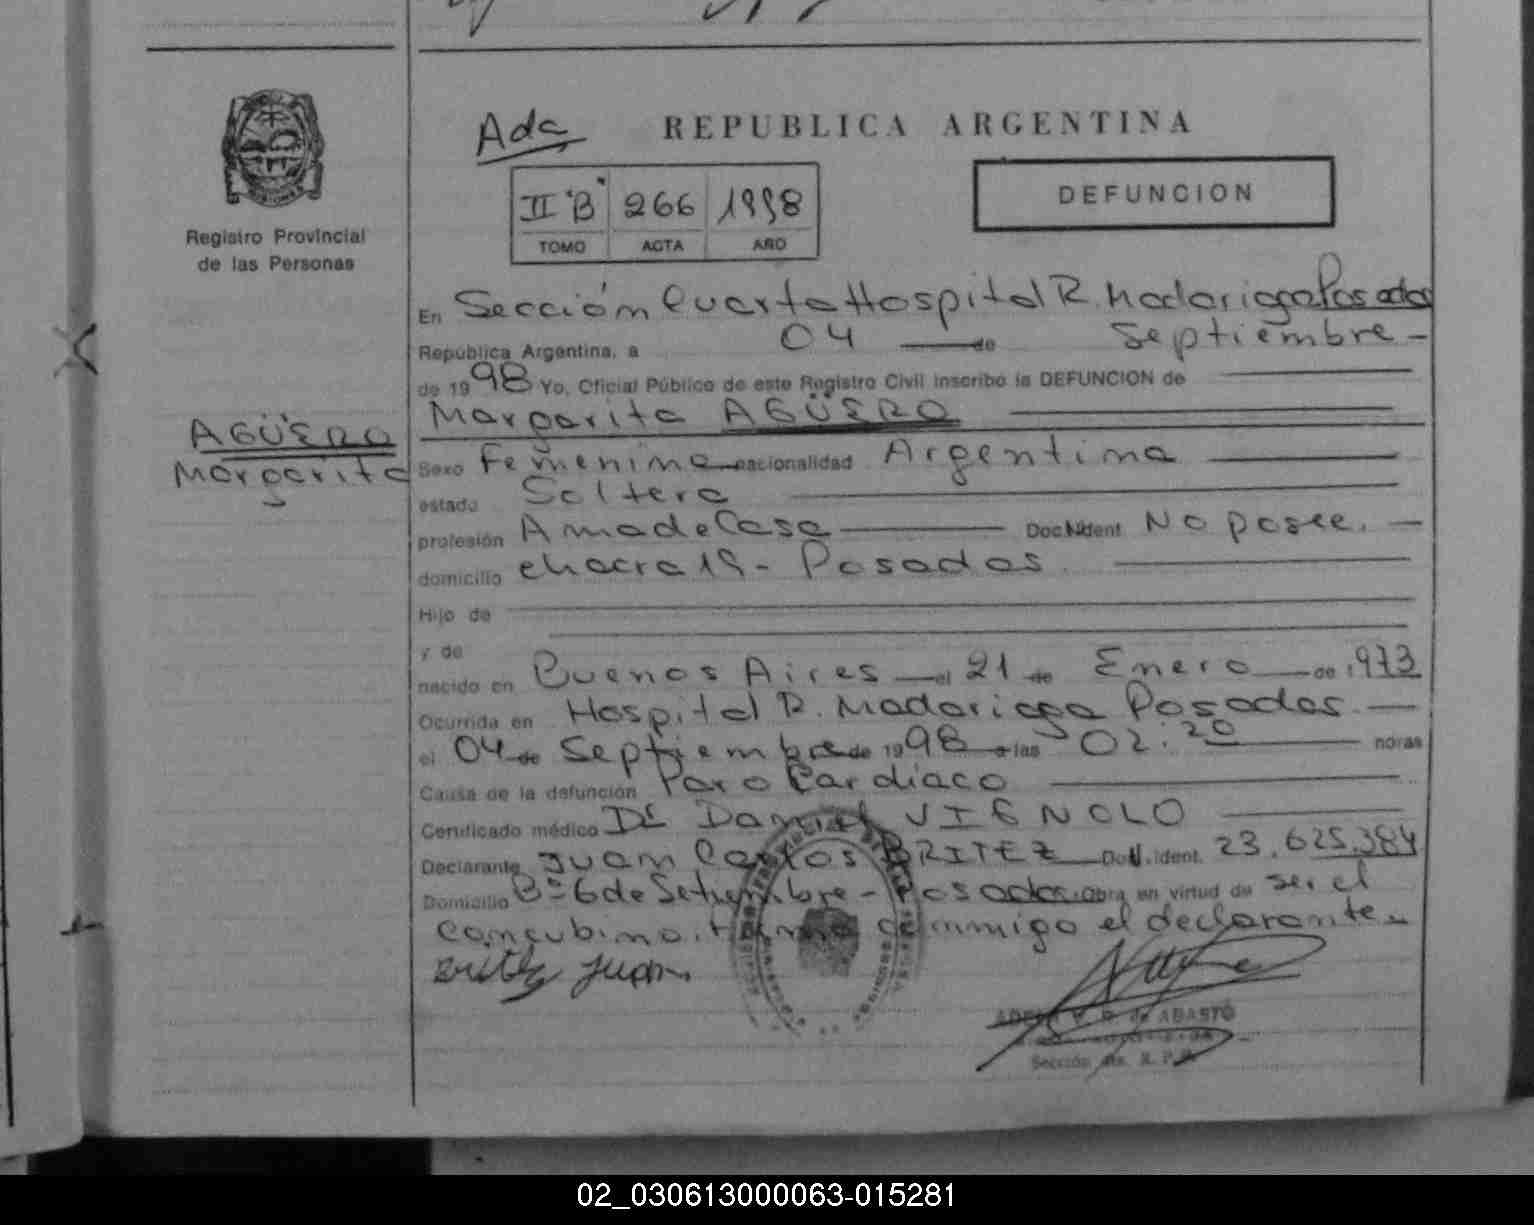 Ada
REPUBLICA ARGENTINA
II "B" 266 1998
TOMO ACTA AÑO
DEFUNCION
Registro Provincial
de las Personas
En Sección Cuarta Hospital R. Madariaga Posadas
República Argentina, a 04 de Septiembre -
de 1998 Yo, Oficial Público de este Registro Civil inscribo la DEFUNCION de
Margarita AGÜERO
AGÜERO
Margarita
Sexo Femenina nacionalidad Argentina
estado Soltera
profesión Ama de Casa Doc. Ident. No posee. -
domicilio chacra 19 - Posadas
Hijo de
y de
nacido en Buenos Aires el 21 de Enero de 1973
Ocurrida en Hospital R. Madariaga Posadas. -
el 04 de Septiembre de 1998 a las 02:20 horas
Causa de la defunción Paro Cardíaco
Certificado médico Dr Daniel VIGNOLO
Declarante Juan Carlos BRITEZ Doc. Ident. 23.625.384
Domicilio Bº 6 de Setiembre - Posadas. Obra en virtud de ser el
concubino. conmigo el declarante. -
Britez Juan
de ABASTO
Sección R. P.
02_030613000063-015281